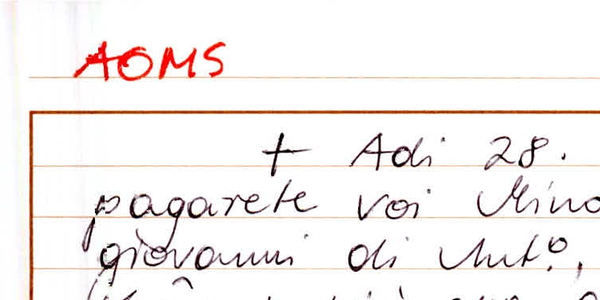 AOMS
+ Adi 28.
pagarete voi Mino
giovanni di Ant.o,